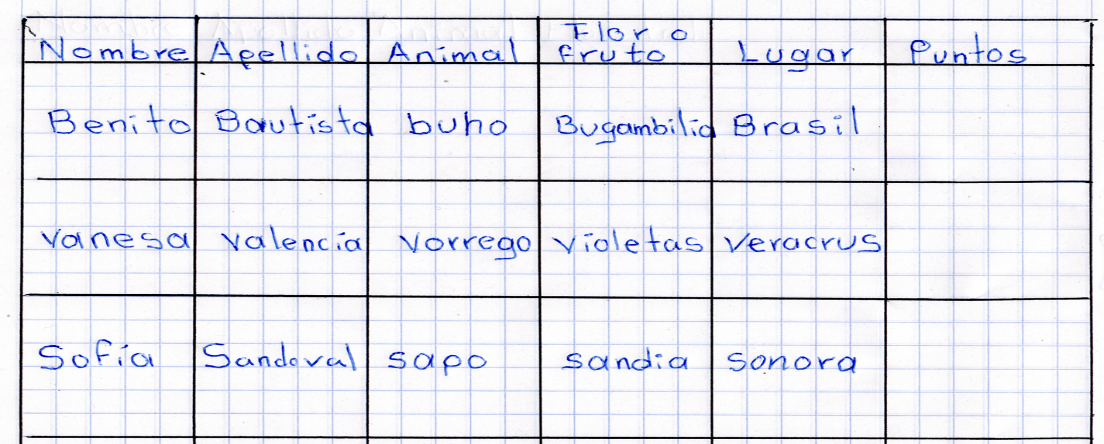 Nombre Apellido Animal Flor o fruto Lugar Puntos
Benito Bautista buho Bugambilia Brasil
vanesa valencia vorrego violetas veracrus
Sofía Sandoval sapo sandia sonora